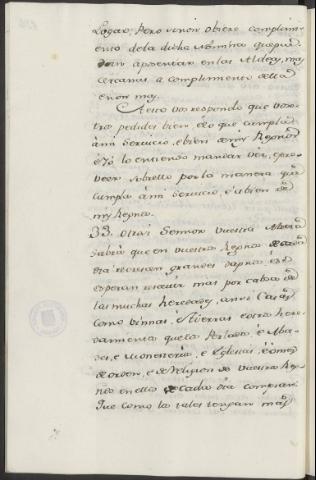 Logar, Pero si non obiere complimi-
ento de la dicha Nomina que pue-
dan aposentar en las Aldeas mas
cercanas a complimento della
e non mas.
A esto vos respondo que voso-
tros pedides bien, e lo que cumple
a mi servicio, e bien de mis Regnos
e Yo lo entiendo mandar ver, e pro-
veer sobrello por la manera que
cumpla a mi servicio, e a bien de
mis Regnos.
33. Otrosi Sennor vuestra Alteza
sabrá que en vuestros Regnos de cada
dia recrescen grandes dapnos, e se
esperan recrecer mas por cabsa de
las muchas heredades, ansi Casas
como vinnas, e Tierras e otros here-
damientos que los Perlados, e Aba-
des, e Monesterios, e Iglesias, e omes
de orden, e de Religion de vuestros Reg-
nos en ellos de cada dia compran.
Que como los tales tengan mas